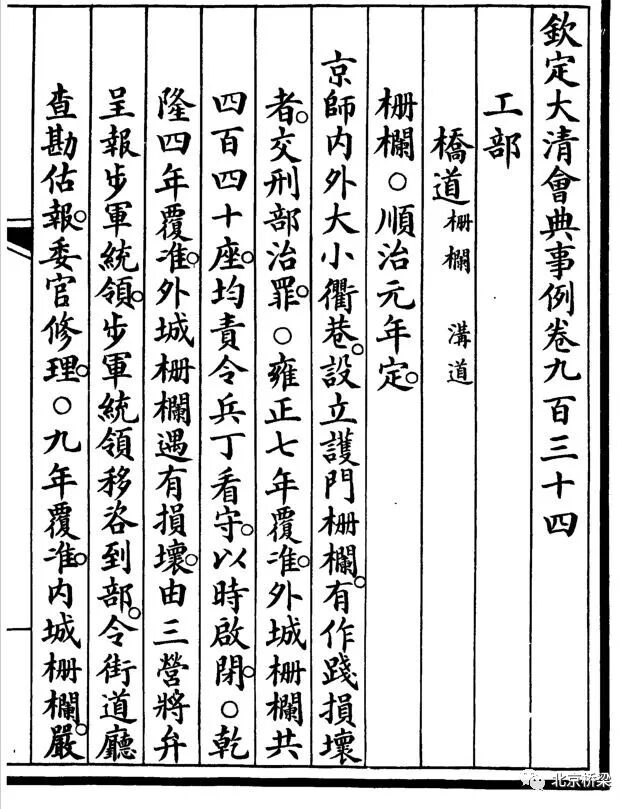 欽定大清會典事例卷九百三十四
工部
橋道柵欄 溝道
柵欄○順治元年定。
京師內外大小衢巷。設立護門柵欄。有作踐損壞
者。交刑部治罪。○雍正七年覆准。外城柵欄共
四百四十座。均責令兵丁看守。以時啟閉。○乾
隆四年覆准。外城柵欄遇有損壞。由三營將弁
呈報步軍統領。步軍統領移咨到部。令街道廳
查勘估報。委官修理。○九年覆准。內城柵欄。嚴
北京桥梁